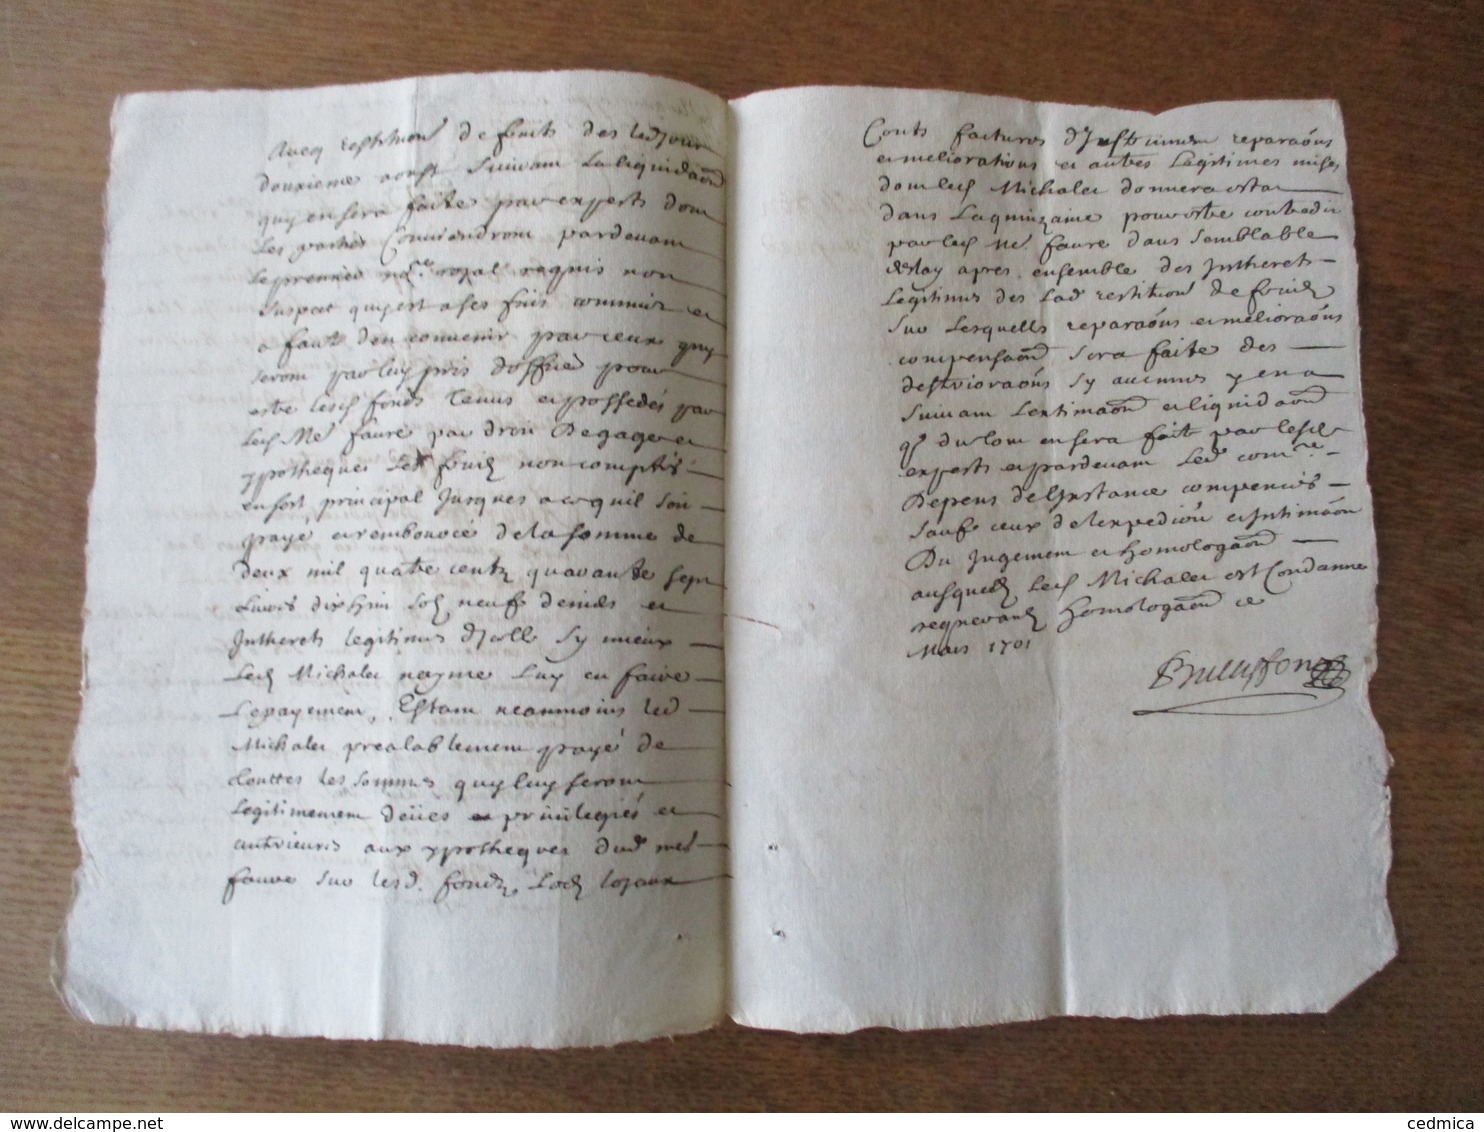 Avec restitution de fruits des led jour
douxieme aoust suivam la liquidaõn
quy en sera faite par experts dom
les parties conviendrom pardevam
le premier nore royal requis non
suspect quy est a ses fins commis et
a faute den convenir par ceux quy
serom par luy pris doffice pour
estre lesd fonds tenus et possedés par
led Me faure par droit de gage et
ypotheque Les fruits non comptés
en sort principal Jusques a ce quil soit
payé et remboursé de la somme de
deux mil quatre centz quarante sept
Livres dix huit solz neuf deniers et
Intherets legitimes dicelle sy mieux
Led Michalet nayme luy en faire
Le payement, Estam neanmoins led
Michalet prealablement payé de
touttes les sommes quy luy serom
legitimement deües et privilegiés et
anterieures aux ypotheques dud me
faure sur lesd. fonds, Lods loyaux
Couts factures dInstrumens reparaõns
et meliorations et autres Legitimes mises
dom led Michalet donnera estat
dans La quinzaine pour estre contredit
par led Me. faure dans semblable
deslay apres, ensemble des Intherets
Legitimes des Lad restitution de fruits
sur Lesquells reparaõns et melioraõns
compensaõn sera faite des
desterioraõns sy aucunes y en a
suivam Lestimaõn et liquidaõn
q. du tout en sera fait par lesd
experts et pardevam Led comre
Depens de Linstance compencés
sauf ceux de lexpediõn et Intimaõn
Du Jugement et homologaõn
ausquels led Michalet est Condanne
requerans homologaõn ce
Mars 1701
cedmica